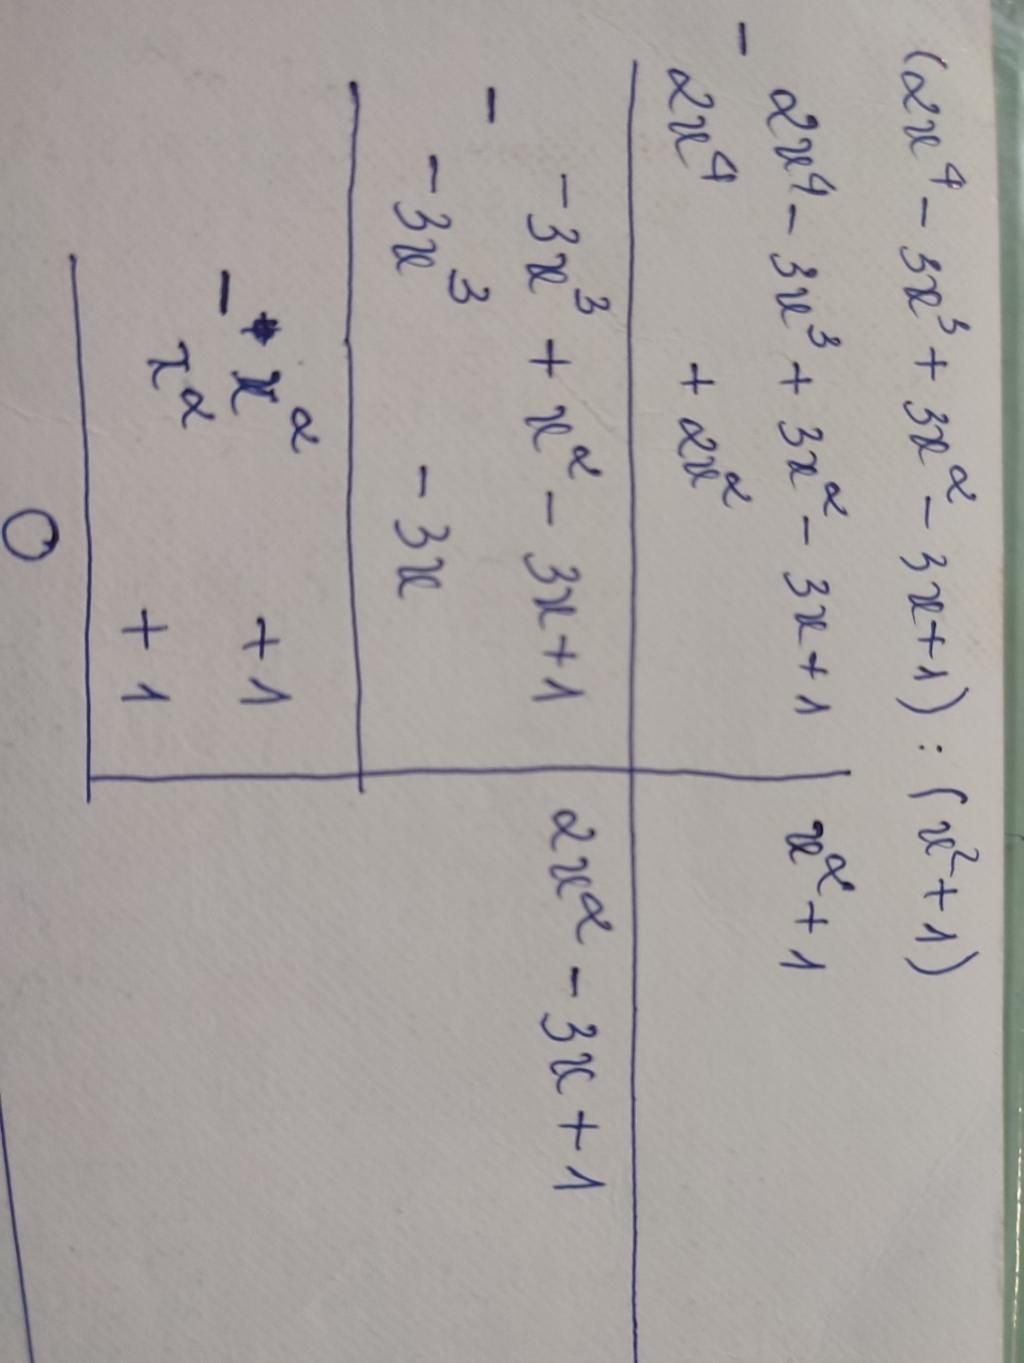 (2x⁴ - 3x³ + 3x² - 3x + 1) : (x² + 1)
- 2x⁴ - 3x³ + 3x² - 3x + 1 | x² + 1
2x⁴ + 2x²
- -3x³ + x² - 3x + 1 | 2x² - 3x + 1
-3x³ - 3x
- x² + 1
x² + 1
0